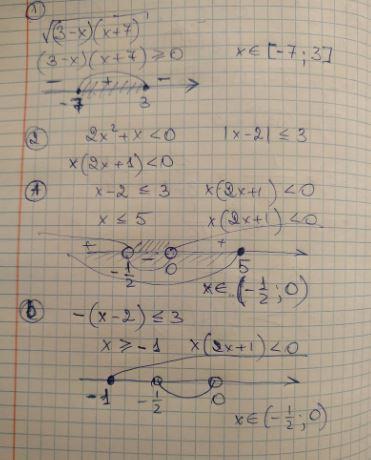 ① √(3-x)(x+7)
(3-x)(x+7) ≥ 0 x ∈ [-7; 3]
- + -
-7 3
② 2x² + x < 0 |x-2| ≤ 3
x(2x+1) < 0
ⓐ x-2 ≤ 3 x(2x+1) < 0
x ≤ 5 x(2x+1) < 0
+ - +
-1/2 0 5
x ∈ (-1/2; 0)
ⓑ -(x-2) ≤ 3
x ≥ -1 x(2x+1) < 0
-1 -1/2 0
x ∈ (-1/2; 0)